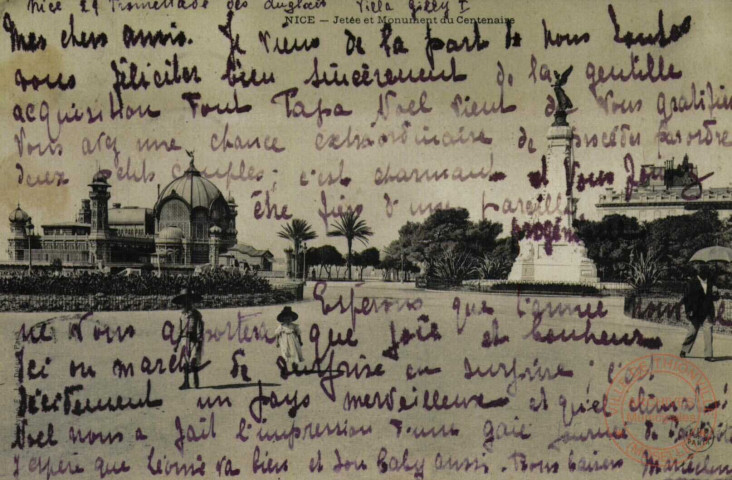 Nice 29 Promenade des Anglais Villa Gilly I
NICE — Jetée et Monument du Centenaire
Mes chers amis. Je viens de la part de nous toutes
vous féliciter bien sincèrement de la gentille
acquisition dont Papa Noel vient de vous gratifier
Vous avez une chance extraordinaire de procéder par ordre
deux petits couples; c'est charmant et vous
être fiers d'une pareille
progéni
Espérons que l'année nouvelle
ne vous apportera que joie et bonheur
Ici on marche de surprise en surprise; c'est
décidement un pays merveilleux et quel climat!
Noel nous a fait l'impression d'une gaie journée de
J'espère que Léonie va bien et son baby aussi. Bons baisers